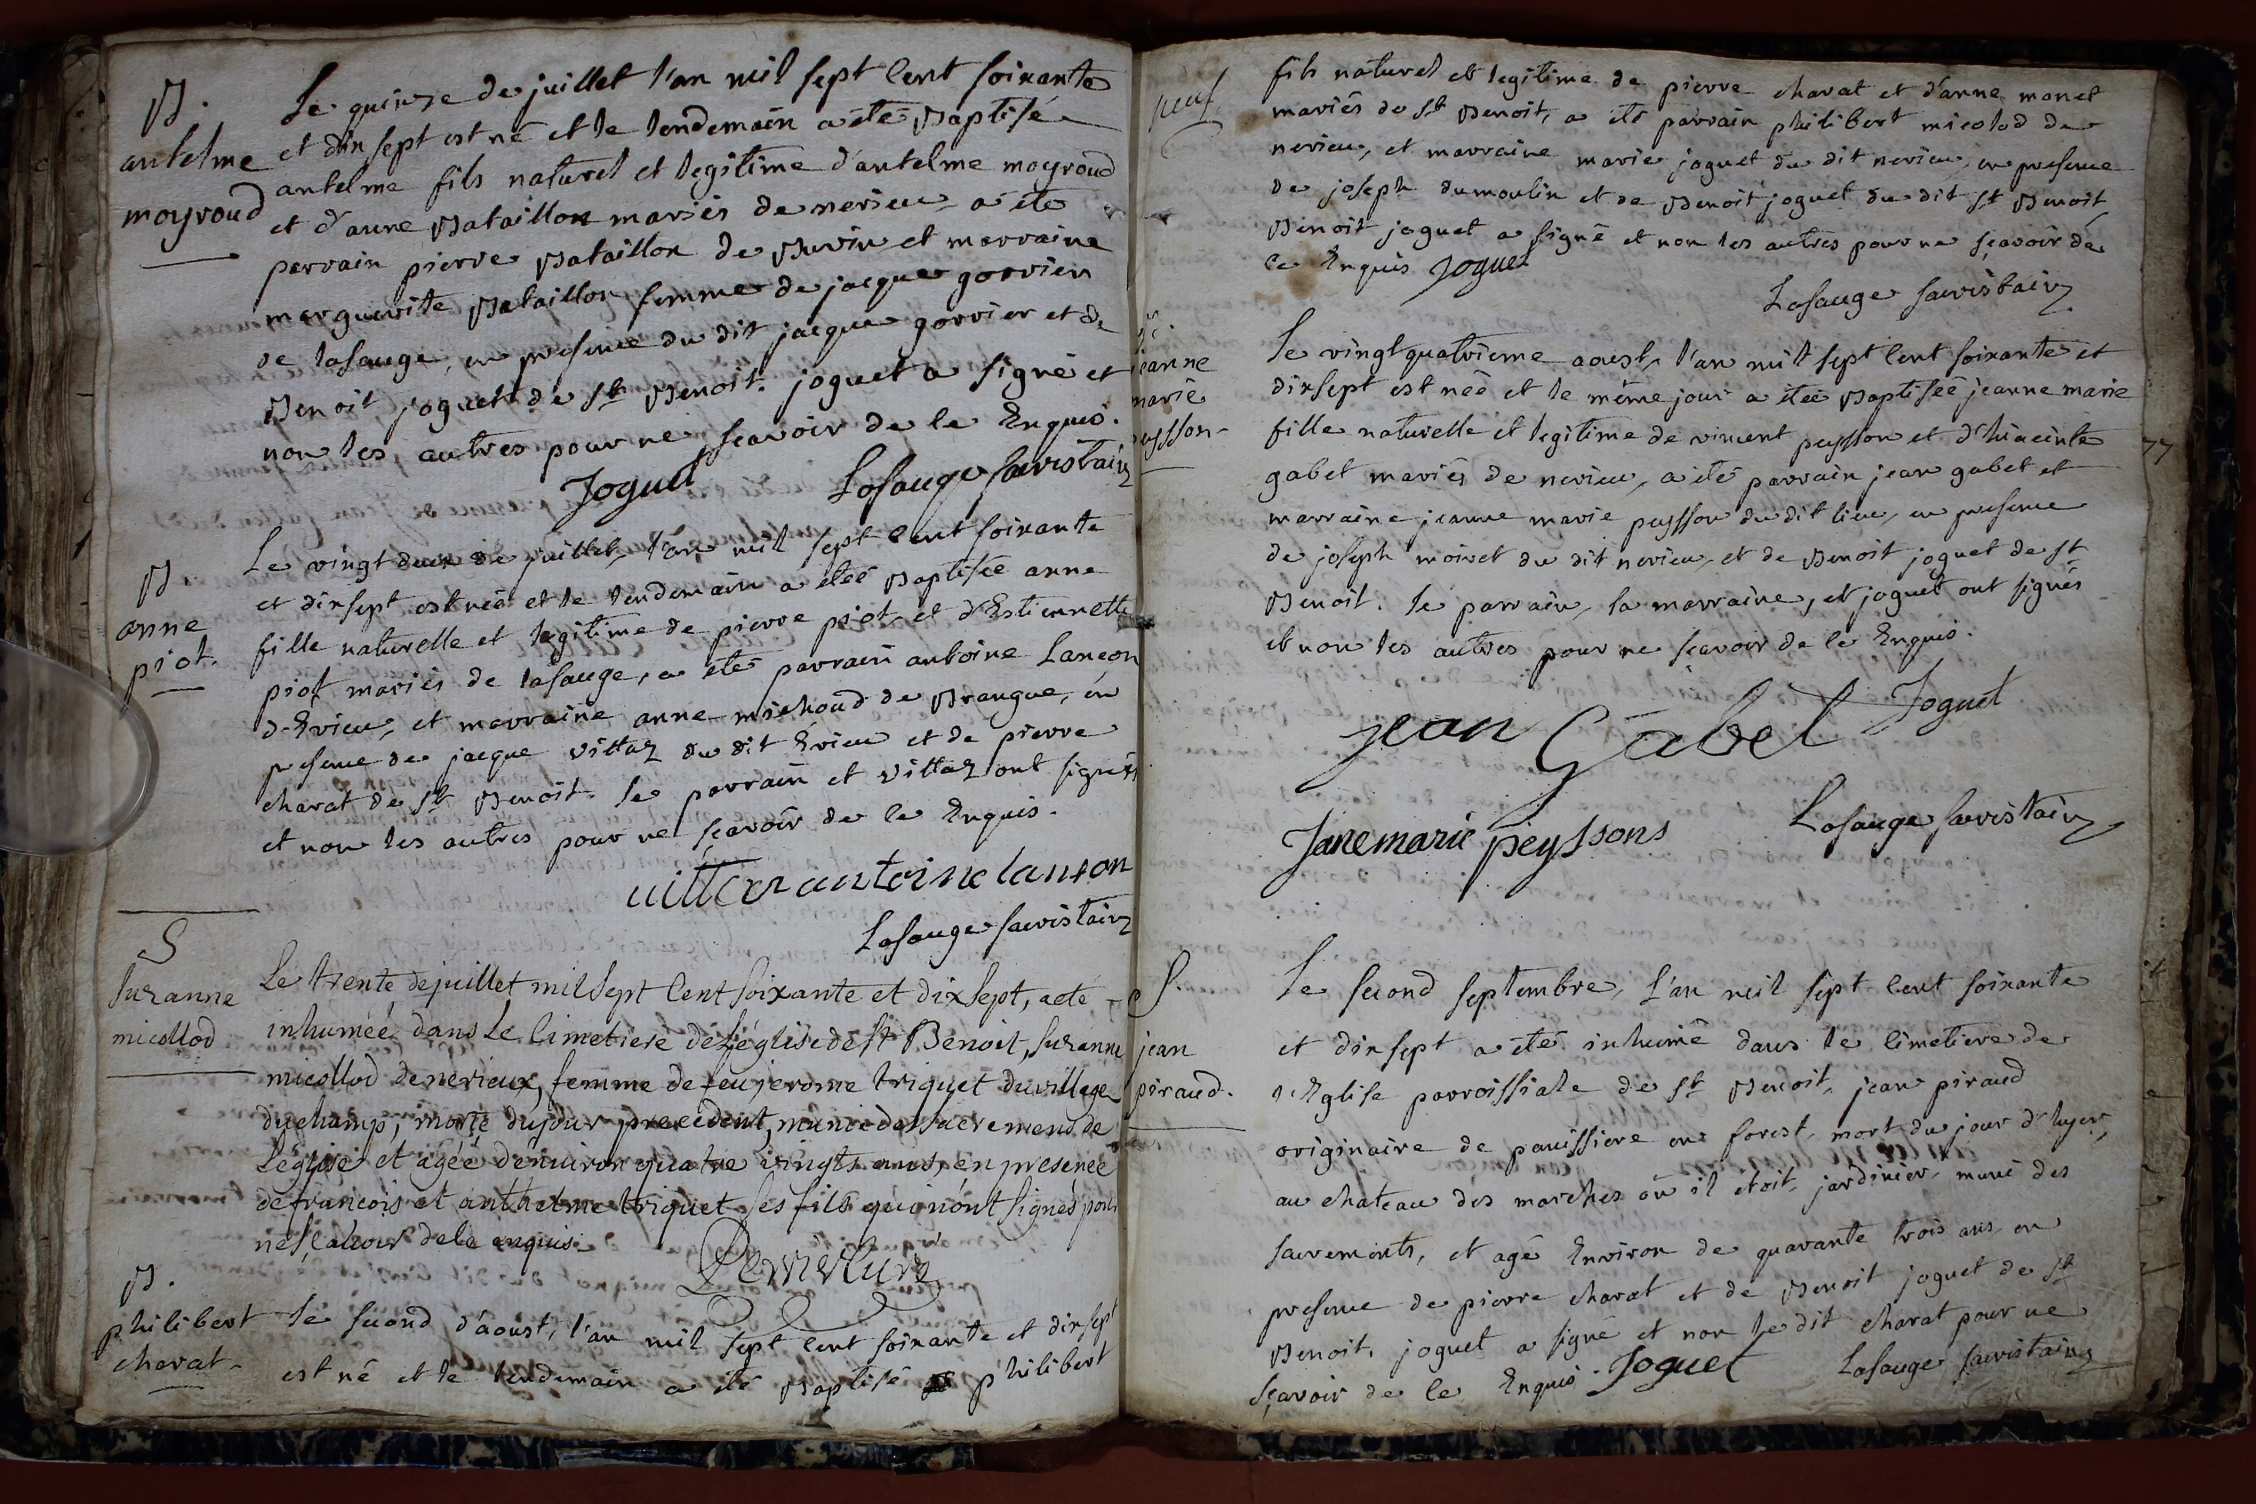 B.
antelme
moyroud
Le quinze de juillet l'an mil sept cent soixante
et dix sept est né et le lendemain a été Baptisé
antelme fils naturel et legitime d'antelme moyroud
et d'anne Bataillon mariés de nerieu a été
parrain pierre Bataillon de Buvin et marraine
marguerite Bataillon femme de jacque gorrier
de lasauge, en presence du dit jacque gorrier et de
Benoit joguet de St Benoit. joguet a signé et
non les autres pour ne sçavoir de ce Enquis.
Joguet Lasauge sacristain
B.
anne
piot.
Le vingt deux de juillet, l'an mil sept cent soixante
et dix sept est née et le lendemain a étée Baptisée anne
fille naturelle et legitime de pierre piot et d'Estiennette
piot mariés de lasauge, a été parrain antoine Lancon
d'Evieu, et marraine anne michoud de Brangue, en
presence de jacque Villaz du dit Evieu et de pierre
charat de St Benoit. le parrain et Villaz ont signés
et non les autres pour ne sçavoir de ce Enquis.
antoine lancon
Lasauge sacristain
S
Suzanne
micollod
Le trente de juillet mil sept cent soixante et dix sept, a eté
inhuméé dans le cimetiere de l'église de st Benoit, Suzanne
micollod de nerieux, femme de feu jerome triquet du village
du champ, morte du jour precedent, munie des sacremens de
l'eglise et agéé d'environ quatre vingts ans, en presence
de francois et anthelme triquet ses fils qui n'ont signés pour
ne sçavoir de ce enquis.
B.
philibert
charat
Le second d'aoust, l'an mil sept cent soixante et dix sept
est né et le lendemain a été Baptisé philibert
fils naturel et legitime de pierre charat et d'anne monet
mariés de St Benoit, a été parrain philibert micolod de
nerieu, et marraine marie joguet du dit nerieu, en presence
de joseph dumoulin et de Benoit joguet du dit St Benoit
Benoit joguet a signé et non les autres pour ne sçavoir de
ce Enquis Joguet
Lasauge sacristain
jeanne
marie
peysson
Le vingt quatrieme aoust, l'an mil sept cent soixante et
dix sept est née et le même jour a étée Baptisée jeanne marie
fille naturelle et legitime de vincent peysson et d'hiacinte
gabet mariés de nerieu, a été parrain jean gabet et
marraine jeanne marie peysson du dit lieu, en presence
de joseph moiret du dit nerieu, et de Benoit joguet de St
Benoit. le parrain, la marraine, et joguet ont signés
et non les autres pour ne sçavoir de ce Enquis.
jean Gabet Joguet
Jane marie peyssons Lasauge sacristain
S.
jean
piraud.
Le second septembre, l'an mil sept cent soixante
et dix sept a été inhumé dans le cimetiere de
l'Eglise parroissiale de St Benoit, jean piraud
originaire de panissiere en forest, mort du jour d'hyer,
au chateau des marches où il étoit jardinier, muni des
sacrements, et agé Environ de quarante trois ans, en
presence de pierre charat et de Benoit joguet de St
Benoit. joguet a signé et non le dit charat pour ne
sçavoir de ce Enquis. Joguet Lasauge sacristain